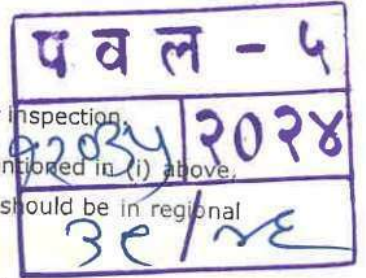 पवल - ५
inspection.
१२०३५ २०२४
ntioned in (i) above,
should be in regional
३९/४६